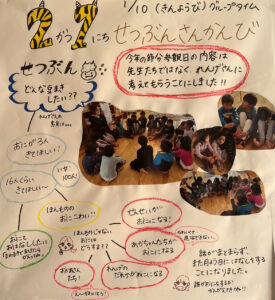 1/10 (きんようび) グループタイム
2がつ1にち せつぶんさんかんび
今年の節分参観日の内容は
先生たちではなく、れんげぐみに
考えてもらうことにしました!!
せつぶん
どんな豆まき
したい??
おにが3人
きてほしい!
16人くらい
きてほしい〜
いや
100人!
ほんものの
おにこわい!!
ほんものじゃない
おには
どうする??
せんせいが
おにになる!
あかちゃんたちが
おにになる
おかあさん
たち!
れんげの
だれかがおにになる
おにと
おはなししたい!
話がまとまらず、
また月よう日にはなしをする
ことになりました。